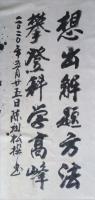 想出解题方法
攀登科学高峰
二〇二〇年五月廿五日陈树松撰书